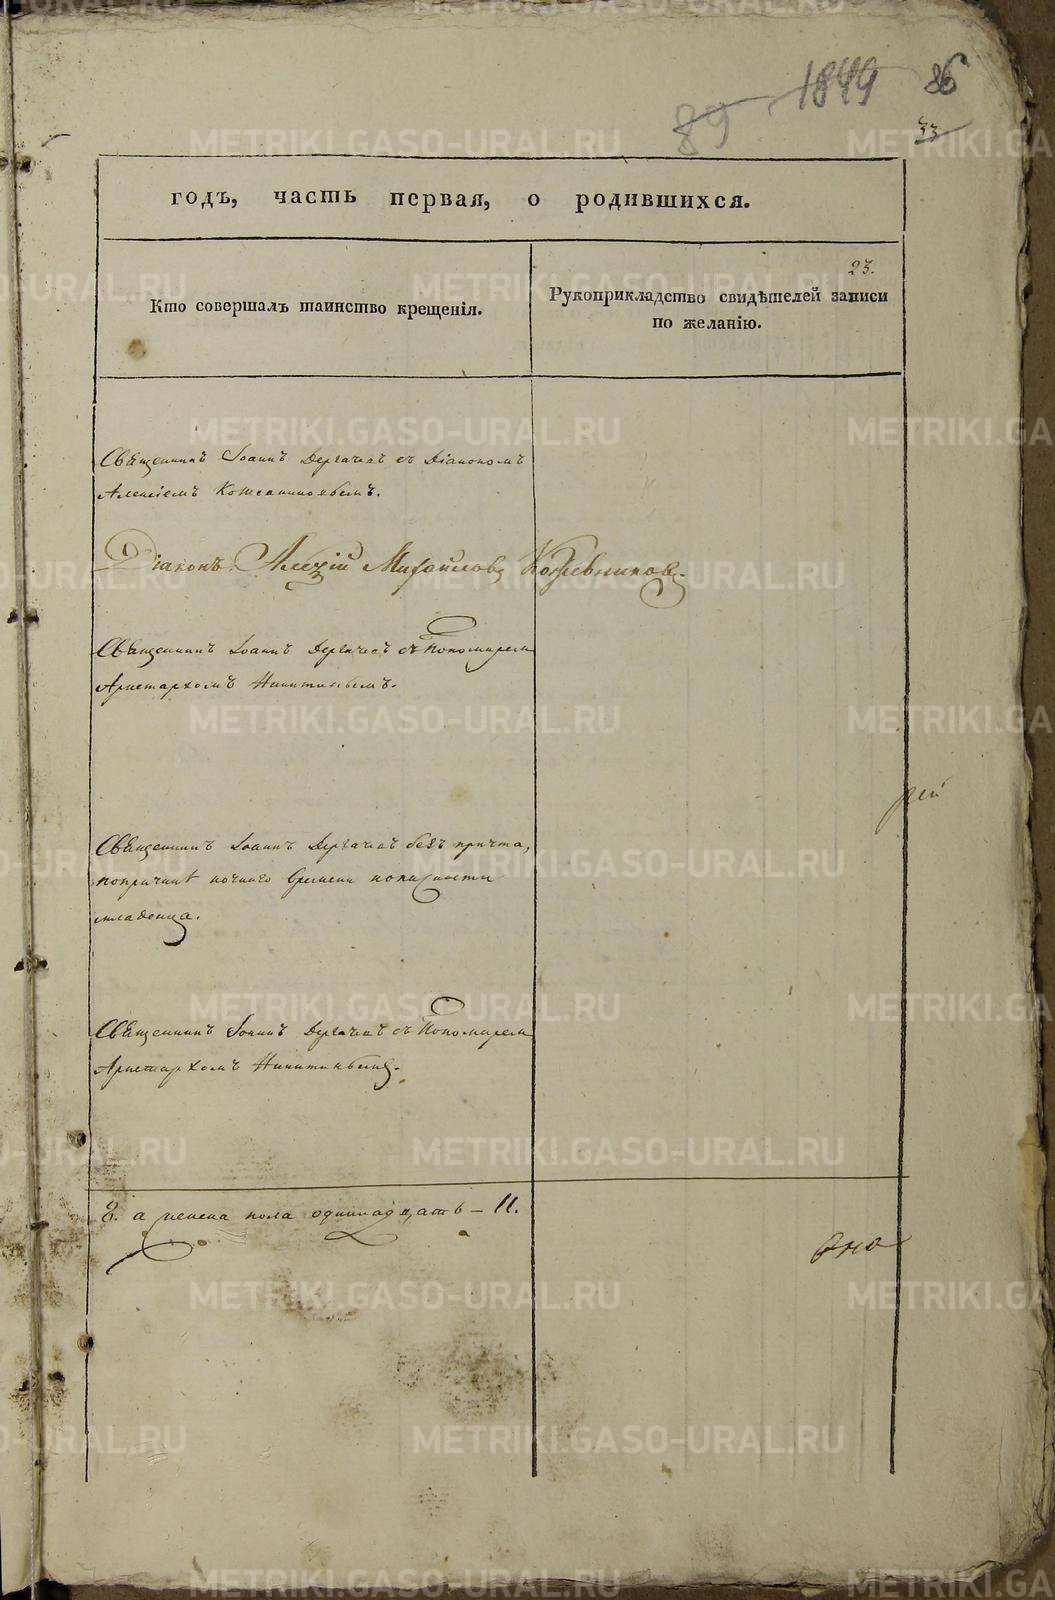 89 1849 86
33
годъ, часть первая, о родившихся.
23.
Кто совершалъ таинство крещенія.
Рукоприкладство свидѣтелей записи
по желанію.
Священникъ Іоаннъ Дергачевъ съ Діакономъ
Алексіемъ Кожевниковымъ.
Діаконъ Алексій Михайловъ Кожевниковъ.
Священникъ Іоаннъ Дергачевъ съ Пономаремъ
Аристархомъ Никитинымъ.
рей
Священникъ Іоаннъ Дергачевъ безъ причта,
попричинѣ ночнаго времени
младенца.
Священникъ Іоаннъ Дергачевъ съ Пономаремъ
Аристархомъ Никитинымъ.
8. а женска пола одиннадцать – 11.
METRIKI.GASO-URAL.RU